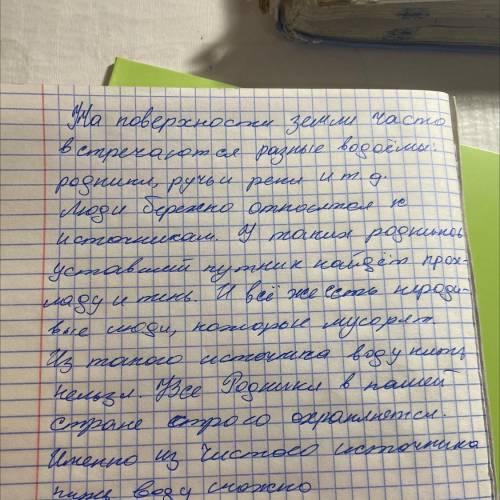 На поверхности земли часто
встречаются разные водоёмы:
родники, ручьи реки и т д.
Люди бережно относятся к
источникам. У таких родников
уставший путник найдёт прох-
ладу и тень. И всё же есть неради-
вые люди, которые мусорят.
Из такого источника воду пить
нельзя. Все Родники в нашей
стране строго охраняется.
Именно из Чистого источника
пить воду можно